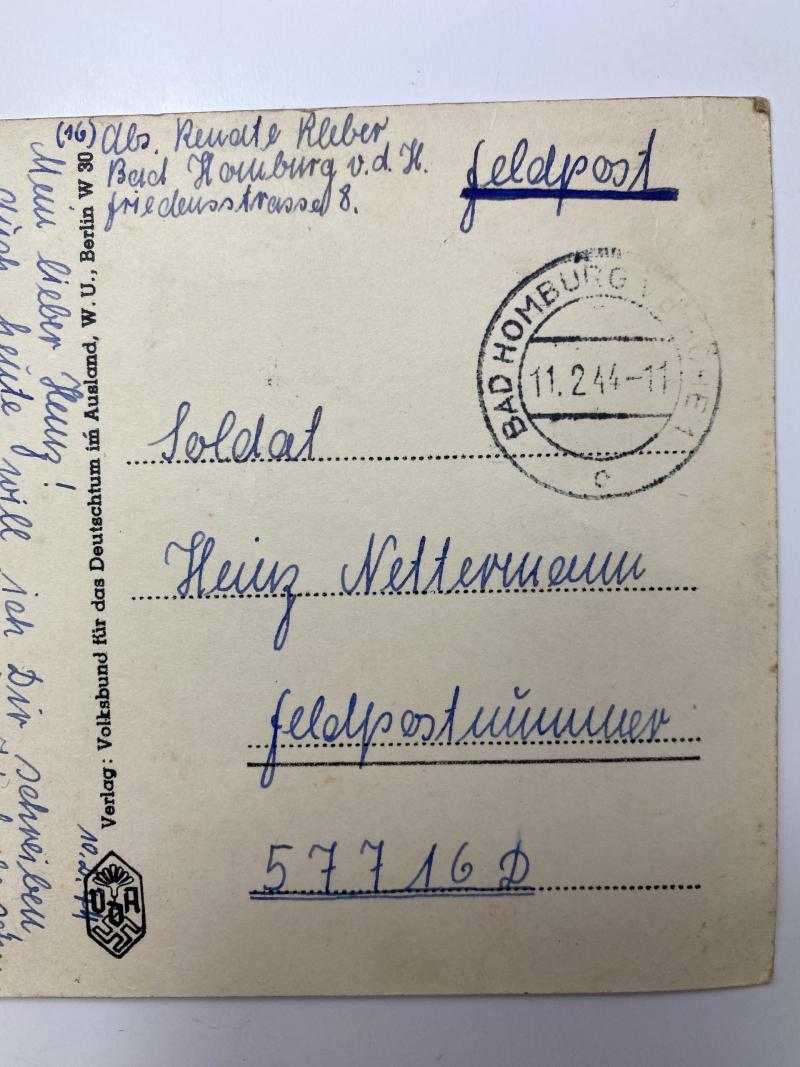 (16) Abs. Renate Kleber
Bad Homburg v. d. H.
Friedensstrasse 8.
Feldpost
BAD HOMBURG v.d. HÖHE 1
11. 2. 44 - 11
c
Soldat
Heinz Nettermann
Feldpostnummer
57716 D
Verlag: Volksbund für das Deutschtum im Ausland, W. U., Berlin W 30
VDA
10.2.44
Mein lieber Heinz!
Auch heute will ich Dir schreiben